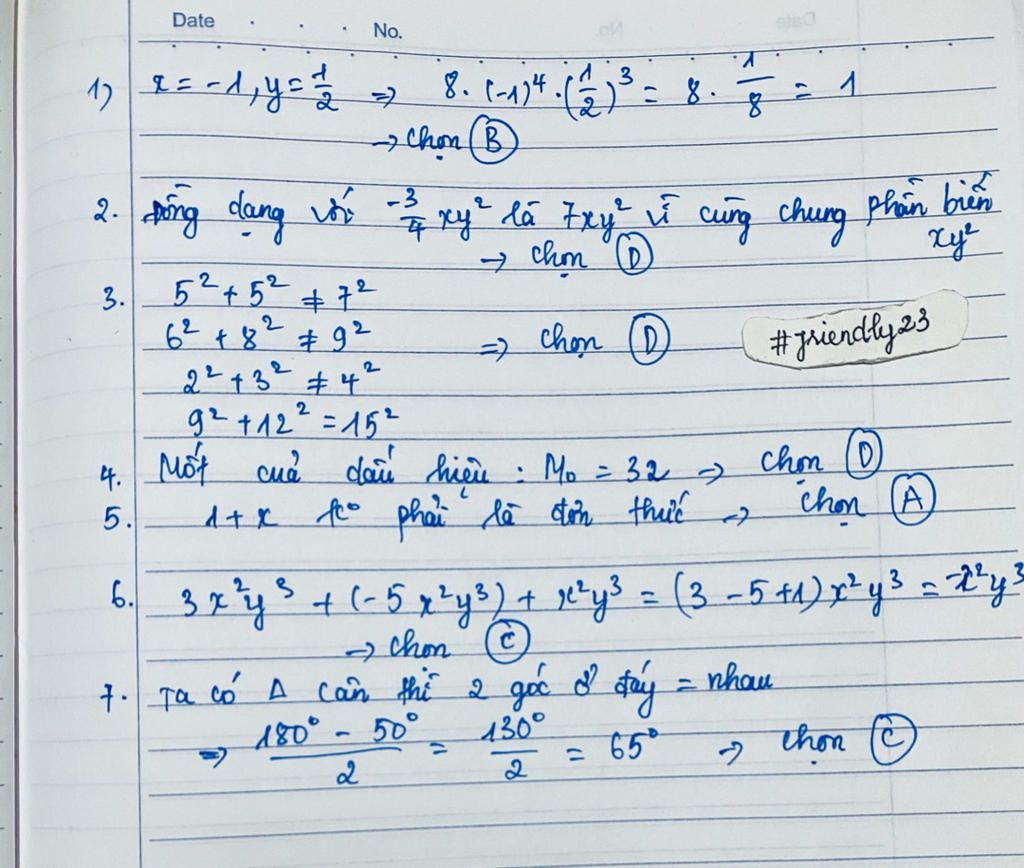 Date . . . No.
1) x = -1, y = 1/2 => 8. (-1)⁴ . (1/2)³ = 8 . 1/8 = 1
→ Chọn B
2. Đồng dạng với -3/4 xy² là 7xy² vì cùng chung phần biến
xy²
→ Chọn D
3. 5² + 5² ≠ 7²
6² + 8² ≠ 9² => Chọn D
#friendly23
2² + 3² ≠ 4²
9² + 12² = 15²
4. Mốt của dấu hiệu : M₀ = 32 → Chọn D
5. 1 + x k° phải là đơn thức → Chọn A
6. 3x²y³ + (-5x²y³) + x²y³ = (3 - 5 + 1) x²y³ = -x²y³
→ Chọn C
7. Ta có Δ cân thì 2 góc ở đáy = nhau
=> (180° - 50°)/2 = 130°/2 = 65° → Chọn C